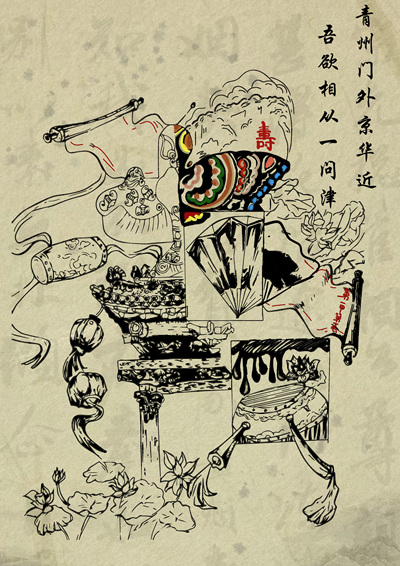 青州门外京华近
吾欲相从一问津
寿